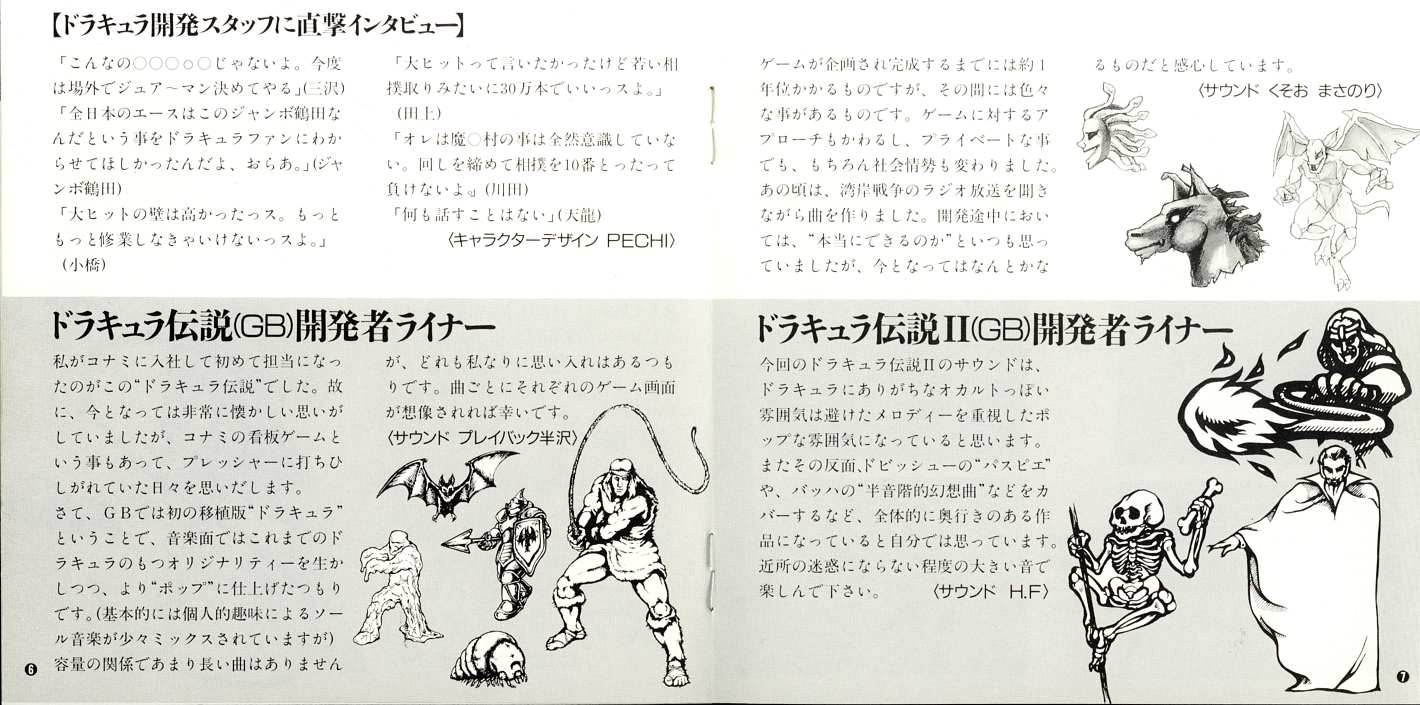 【ドラキュラ開発スタッフに直撃インタビュー】
「こんなの○○○○○じゃないよ。今度
は場外でジュア〜マン決めてやる」(三沢)
「全日本のエースはこのジャンボ鶴田な
んだという事をドラキュラファンにわか
らせてほしかったんだよ、おらあ。」(ジャ
ンボ鶴田)
「大ヒットの壁は高かったっス。もっと
もっと修業しなきゃいけないっスよ。」
(小橋)
「大ヒットって言いたかったけど若い相
撲取りみたいに30万本でいいっスよ。」
(田上)
「オレは魔○村の事は全然意識していな
い。回しを締めて相撲を10番とったって
負けないよ。』(川田)
「何も話すことはない」(天龍)
〈キャラクターデザイン PECHI〉
ゲームが企画され完成するまでには約1
年位かかるものですが、その間には色々
な事があるものです。ゲームに対するア
プローチもかわるし、プライベートな事
でも、もちろん社会情勢も変わりました。
あの頃は、湾岸戦争のラジオ放送を聞き
ながら曲を作りました。開発途中におい
ては、“本当にできるのか”といつも思っ
ていましたが、今となってはなんとかな
るものだと感心しています。
〈サウンド くそお まさのり〉
ドラキュラ伝説(GB)開発者ライナー
私がコナミに入社して初めて担当になっ
たのがこの“ドラキュラ伝説”でした。故
に、今となっては非常に懐かしい思いが
していましたが、コナミの看板ゲームと
いう事もあって、プレッシャーに打ちひ
しがれていた日々を思いだします。
さて、GBでは初の移植版“ドラキュラ”
ということで、音楽面ではこれまでのド
ラキュラのもつオリジナリティーを生か
しつつ、より“ポップ”に仕上げたつもり
です。(基本的には個人的趣味によるソー
ル音楽が少々ミックスされていますが)
容量の関係であまり長い曲はありません
が、どれも私なりに思い入れはあるつも
りです。曲ごとにそれぞれのゲーム画面
が想像されれば幸いです。
〈サウンド プレイバック半沢〉
6
ドラキュラ伝説II(GB)開発者ライナー
今回のドラキュラ伝説IIのサウンドは、
ドラキュラにありがちなオカルトっぽい
雰囲気は避けたメロディーを重視したポ
ップな雰囲気になっていると思います。
またその反面、ドビッシューの“パスピエ”
や、バッハの“半音階的幻想曲”などをカ
バーするなど、全体的に奥行きのある作
品になっていると自分では思っています。
近所の迷惑にならない程度の大きい音で
楽しんで下さい。
〈サウンド H.F〉
7